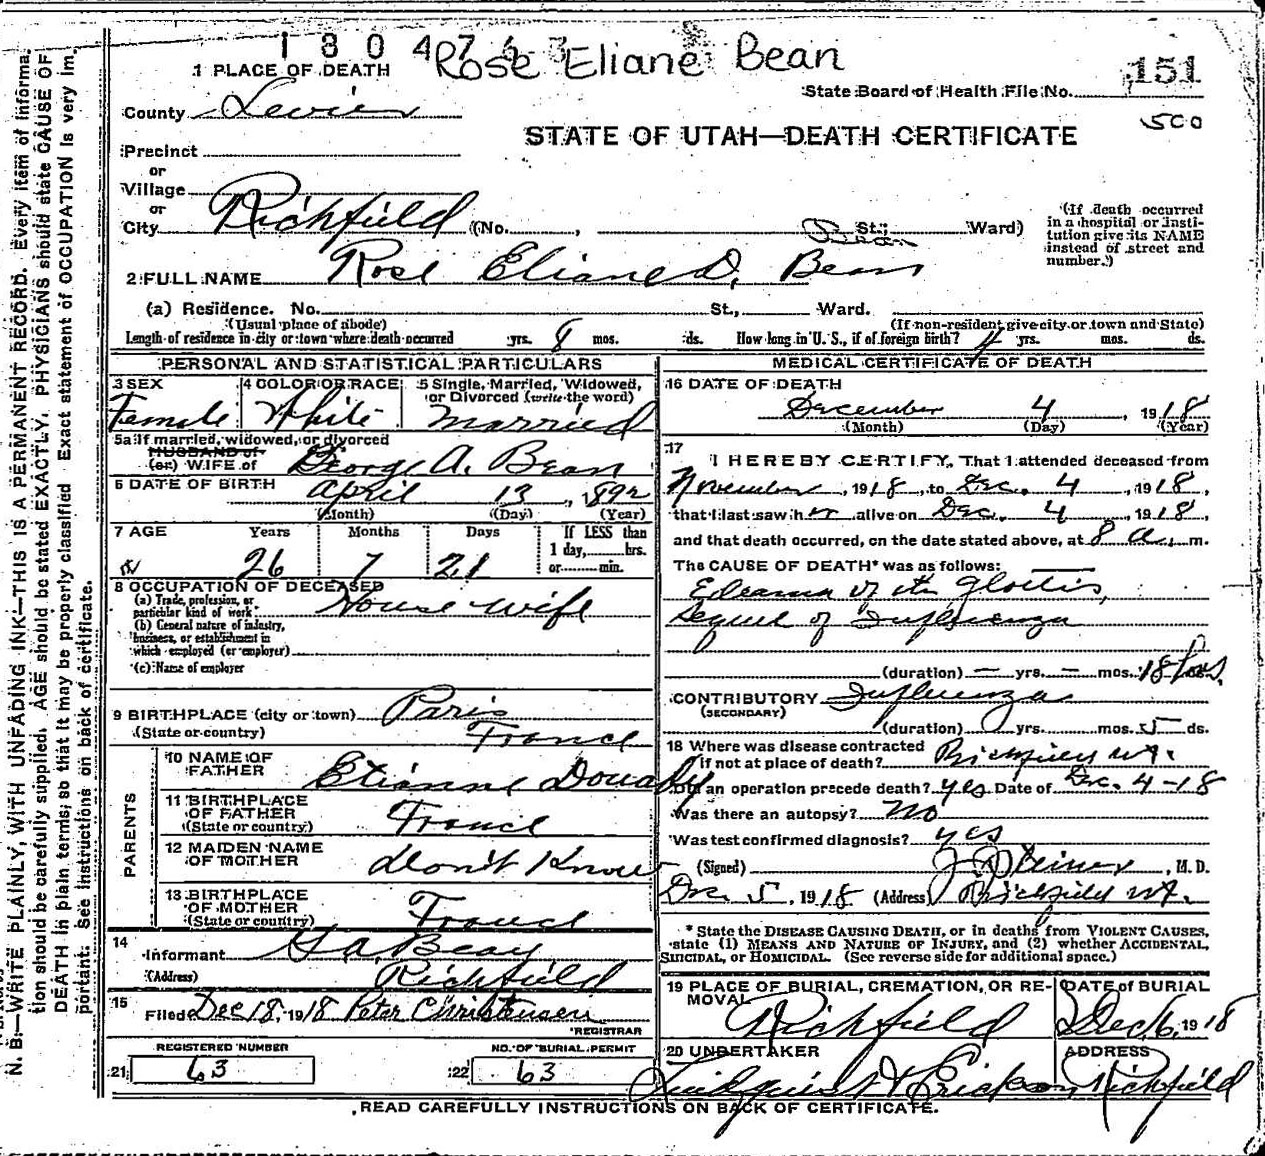 1 3 0 4 7 Rose Eliane Bean
1 PLACE OF DEATH
State Board of Health File No. 151
County Sevier
500
STATE OF UTAH—DEATH CERTIFICATE
Precinct
or
Village
or
City Richfield (No. , St.; Ward)
Bean
(If death occurred in a hospital or institution give its NAME instead of street and number.)
2 FULL NAME Rose Eliane D. Bean
(a) Residence. No. St., Ward.
(Usual place of abode) (If non-resident give city or town and State)
Length of residence in city or town where death occurred yrs. 8 mos. ds. How long in U. S., if of foreign birth? yrs. mos. ds.
PERSONAL AND STATISTICAL PARTICULARS
3 SEX 4 COLOR OR RACE 5 Single, Married, Widowed, or Divorced (write the word)
Female White married
5a If married, widowed, or divorced
HUSBAND of
(or) WIFE of George A. Bean
6 DATE OF BIRTH April 13, 1892
(Month) (Day) (Year)
7 AGE Years Months Days If LESS than
1 day, hrs.
26 7 21 or min.
8 OCCUPATION OF DECEASED
(a) Trade, profession, or particular kind of work House wife
(b) General nature of industry, business, or establishment in which employed (or employer)
(c) Name of employer
9 BIRTHPLACE (city or town) Paris
(State or country) France
PARENTS
10 NAME OF FATHER Etianne
11 BIRTHPLACE OF FATHER (State or country) France
12 MAIDEN NAME OF MOTHER dont Know
13 BIRTHPLACE OF MOTHER (State or country) France
14 Informant
(Address) Richfield
15 Filed Dec 18, 1918 Peter Christensen
REGISTRAR
REGISTERED NUMBER NO. OF BURIAL PERMIT
21 63 22 63
MEDICAL CERTIFICATE OF DEATH
16 DATE OF DEATH
December 4, 1918
(Month) (Day) (Year)
17 I HEREBY CERTIFY, That I attended deceased from
November, 1918, to Dec. 4, 1918,
that I last saw her alive on Dec. 4, 1918,
and that death occurred, on the date stated above, at 8 a. m.
The CAUSE OF DEATH* was as follows:
Edeama of the Glottis,
Sequel of Influenza
(duration) — yrs. — mos. 18 hrs.
CONTRIBUTORY Influenza
(SECONDARY)
(duration) yrs. mos. 5 ds.
18 Where was disease contracted
if not at place of death? Richfield Ut.
Did an operation precede death? yes Date of Dec. 4-18
Was there an autopsy? No
Was test confirmed diagnosis? yes
(Signed) , M. D.
Dec 5, 1918 (Address) Richfield Ut.
* State the DISEASE CAUSING DEATH, or in deaths from VIOLENT CAUSES,
state (1) MEANS AND NATURE OF INJURY, and (2) whether ACCIDENTAL,
SUICIDAL, or HOMICIDAL. (See reverse side for additional space.)
19 PLACE OF BURIAL, CREMATION, OR REMOVAL DATE of BURIAL
Richfield Dec 6, 1918
20 UNDERTAKER ADDRESS
Richfield
READ CAREFULLY INSTRUCTIONS ON BACK OF CERTIFICATE.
N. B.—WRITE PLAINLY, WITH UNFADING INK—THIS IS A PERMANENT RECORD. Every item of informa-
tion should be carefully supplied. AGE should be stated EXACTLY. PHYSICIANS should state CAUSE OF
DEATH in plain terms, so that it may be properly classified. Exact statement of OCCUPATION is very im-
portant. See instructions on back of certificate.